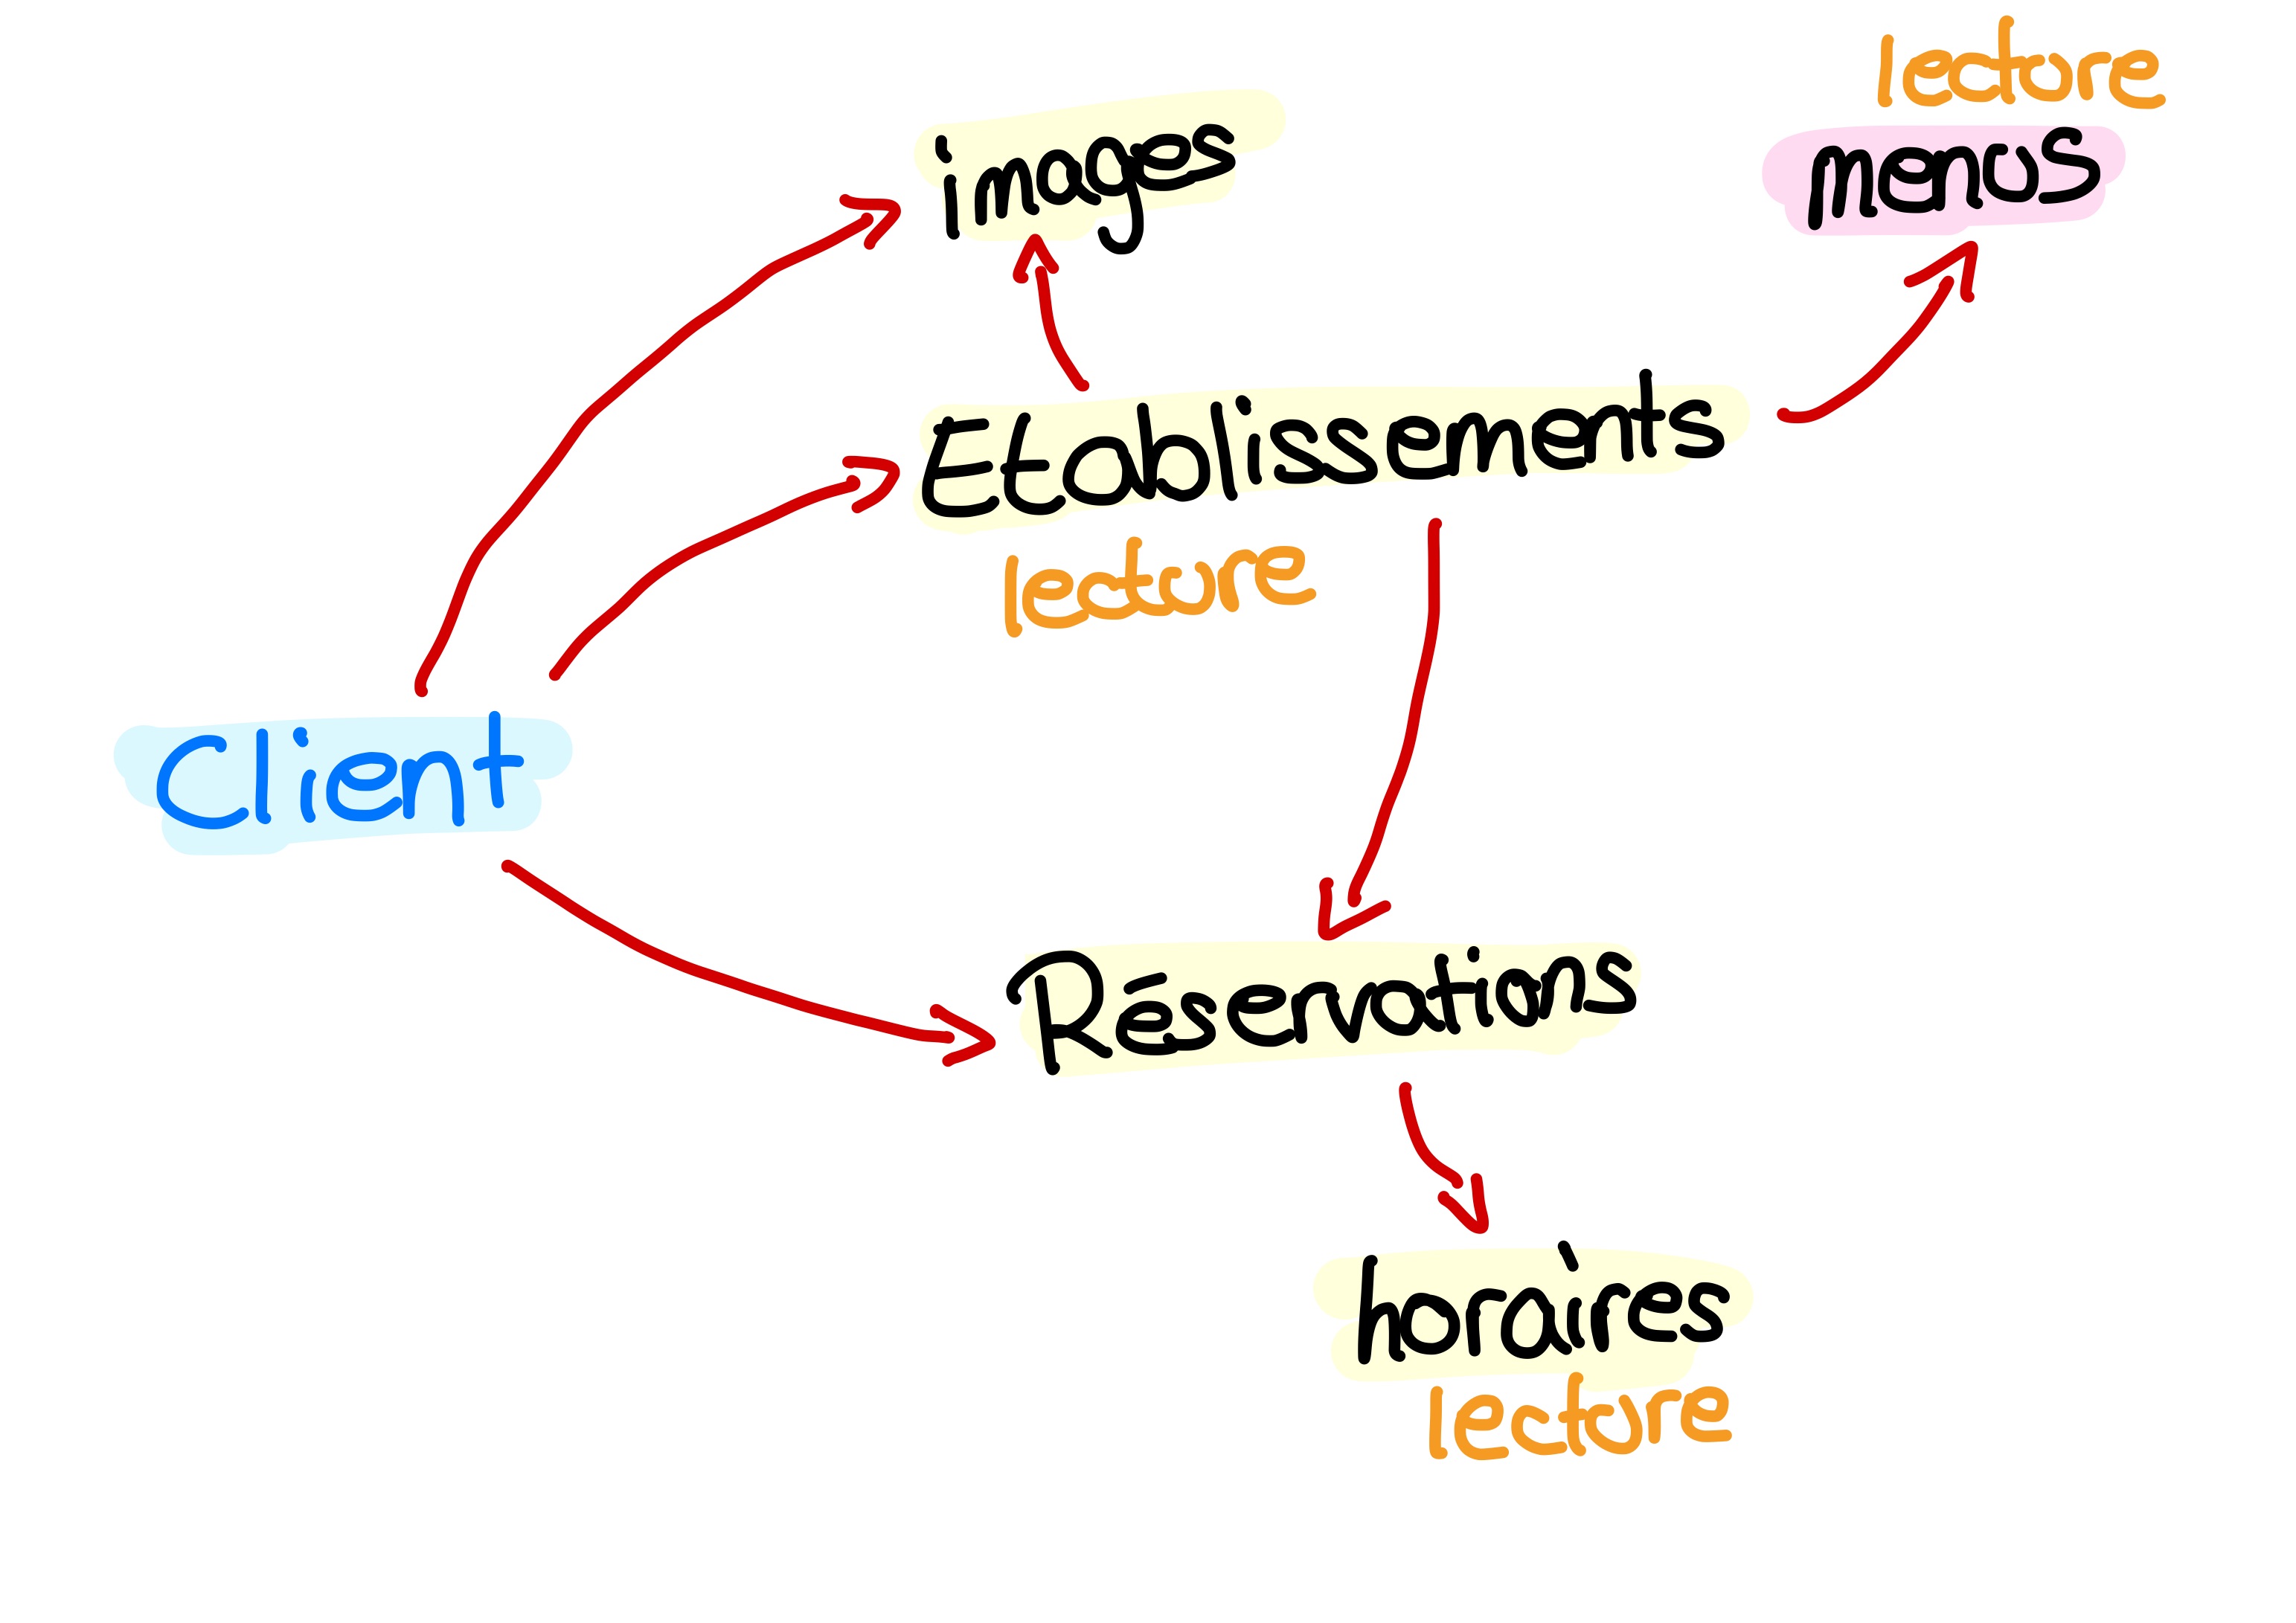 lecture
images
menus
Etablissements
lecture
Client
Réservations
horaires
lecture